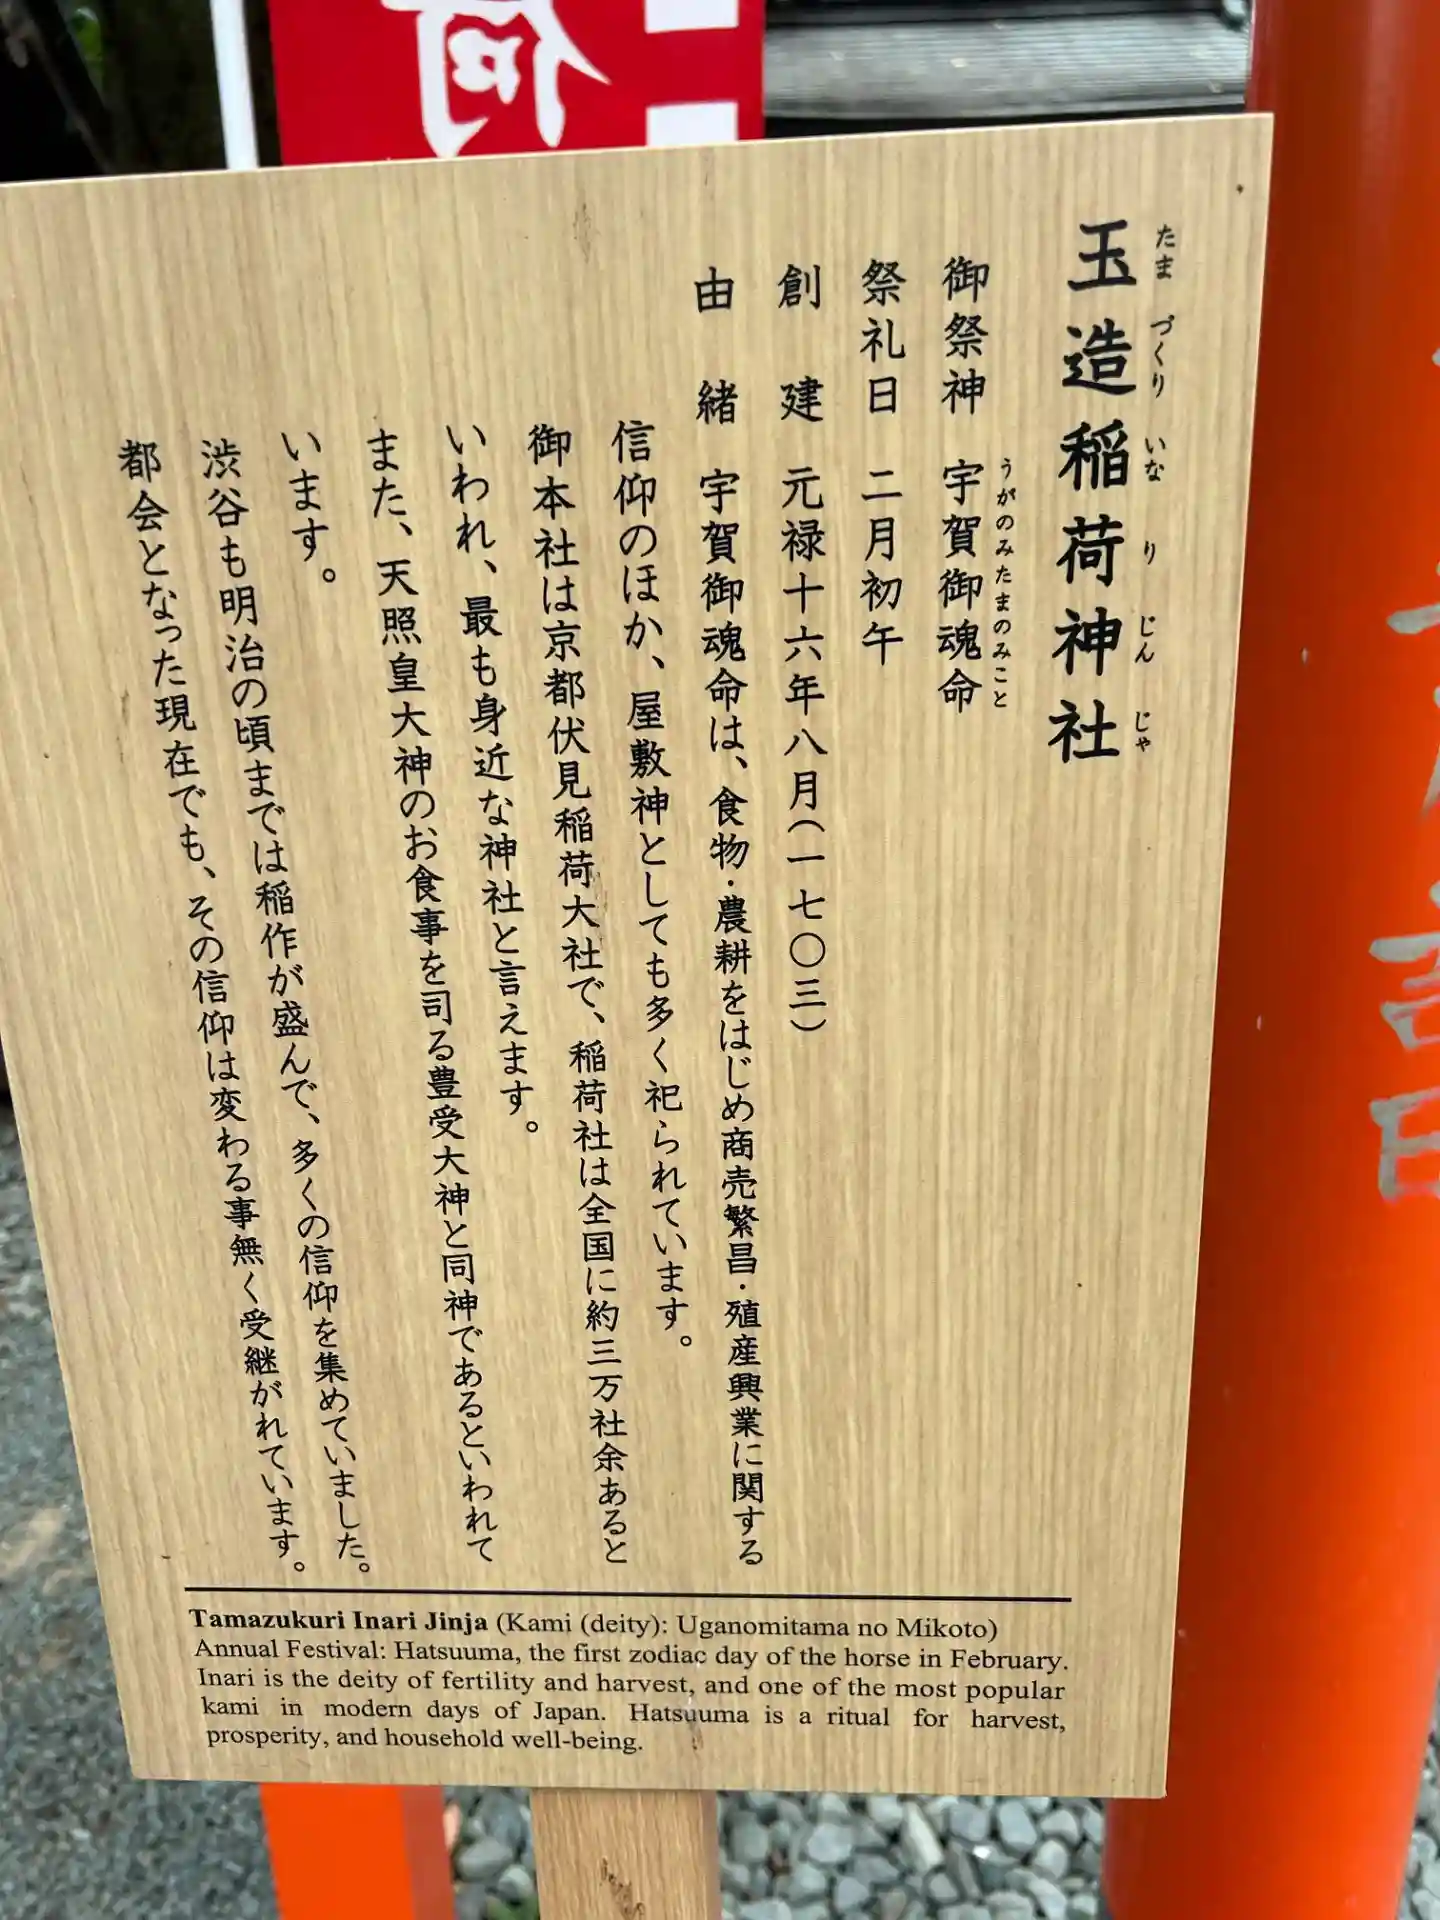 荷
玉造稲荷神社
たまづくりいなりじんじゃ
御祭神 宇賀御魂命
うがのみたまのみこと
祭礼日 二月初午
創建 元禄十六年八月(一七〇三)
由緒 宇賀御魂命は、食物・農耕をはじめ商売繁昌・殖産興業に関する
信仰のほか、屋敷神としても多く祀られています。
御本社は京都伏見稲荷大社で、稲荷社は全国に約三万社余あると
いわれ、最も身近な神社と言えます。
また、天照皇大神のお食事を司る豊受大神と同神であるといわれて
います。
渋谷も明治の頃までは稲作が盛んで、多くの信仰を集めていました。
都会となった現在でも、その信仰は変わる事無く受継がれています。
Tamazukuri Inari Jinja (Kami (deity): Uganomitama no Mikoto)
Annual Festival: Hatsuuma, the first zodiac day of the horse in February.
Inari is the deity of fertility and harvest, and one of the most popular
kami in modern days of Japan. Hatsuuma is a ritual for harvest,
prosperity, and household well-being.